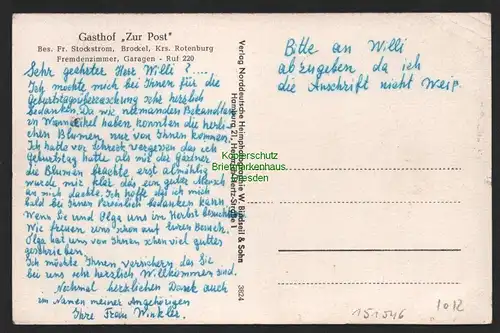 Gasthof „Zur Post"
Bes. Fr. Stockstrom, Brockel, Krs. Rotenburg
Fremdenzimmer, Garagen - Ruf 220
Sehr geehrter Herr Willi ?....
Ich möchte mich bei Ihnen für die
Geburtstagüberraschung sehr herzlich
bedanken. Da wir niemanden Bekandten
in Wanneikel haben, konnten die herli-
chen Blumen, nur von Ihnen kommen.
Ich hatte vor Schreck vergessen das ich
Geburtstag hatte als mir der Gärtner
die Blumen brachte erst almählig
wurde mir klar das ein guter Mensch
an mich dachte. Ich hoffe das ich mich
bald bei Ihnen Persönlich bedanken kann,
Wenn Sie und Olga uns im Herbst besuchen
Wir freuen uns schon auf euren Besuch.
Olga hat uns von Ihnen schon viel gutes
geschrieben.
Ich möchte Ihnen versichern das Sie
bei uns sehr herzlich Willkommen sind.
Nochmal herzlichen Dank auch
im Namen meiner Angehörigen
Ihre Frau Winkler.
Verlag Norddeutsche Heimphotographie W. Blindseil & Sohn
Hamburg 21, Heinrich-Hertz-Straße 1
3824
Bitte an Willi
abzugeben da ich
die Anschrift nicht Weiß.
Kuporschutz
Briefmarkenhaus
Dresden
151546
1012